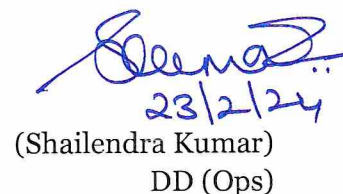 23/2/24
(Shailendra Kumar)
DD (Ops)